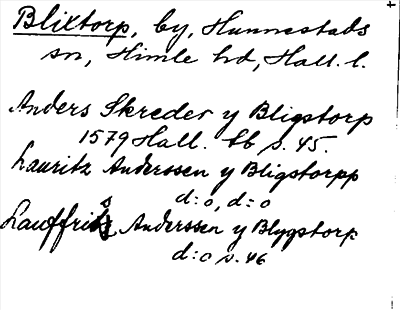 Blixtorp, by, Hunnestads
sn, Himle hd, Hall. l.
Anders Skreder y Bligstorp
1579 Hall. tb s. 45.
Lauritz Anderssen y Bligstorpp
d:o, d:o
Lauffritz Anderssen y Blygstorp
d:o s. 46